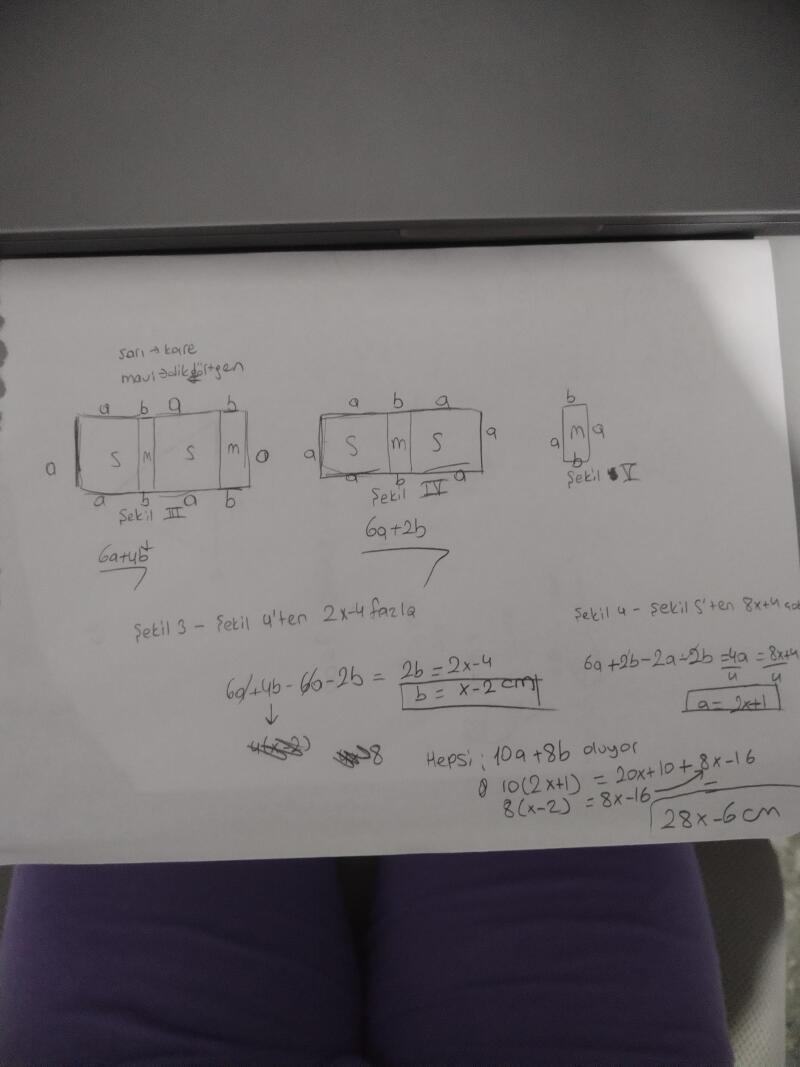 sarı → kare
mavi → dikdörtgen
a b a b
a S M S M a
a b a b
Şekil III
6a+4b
a b a
a S M S a
a b a
Şekil IV
6a+2b
b
a M a
b
Şekil V
Şekil 3 - Şekil 4'ten 2x-4 fazla
6a+4b-6a-2b = 2b = 2x-4
b = x-2 cm
8
Şekil 4 - Şekil 5'ten 8x+4
6a+2b-2a-2b = 4a = 8x+4
4 4
a = 2x+1
Hepsi; 10a+8b oluyor
10(2x+1) = 20x+10 + 8x-16
8(x-2) = 8x-16 =
28x-6 cm